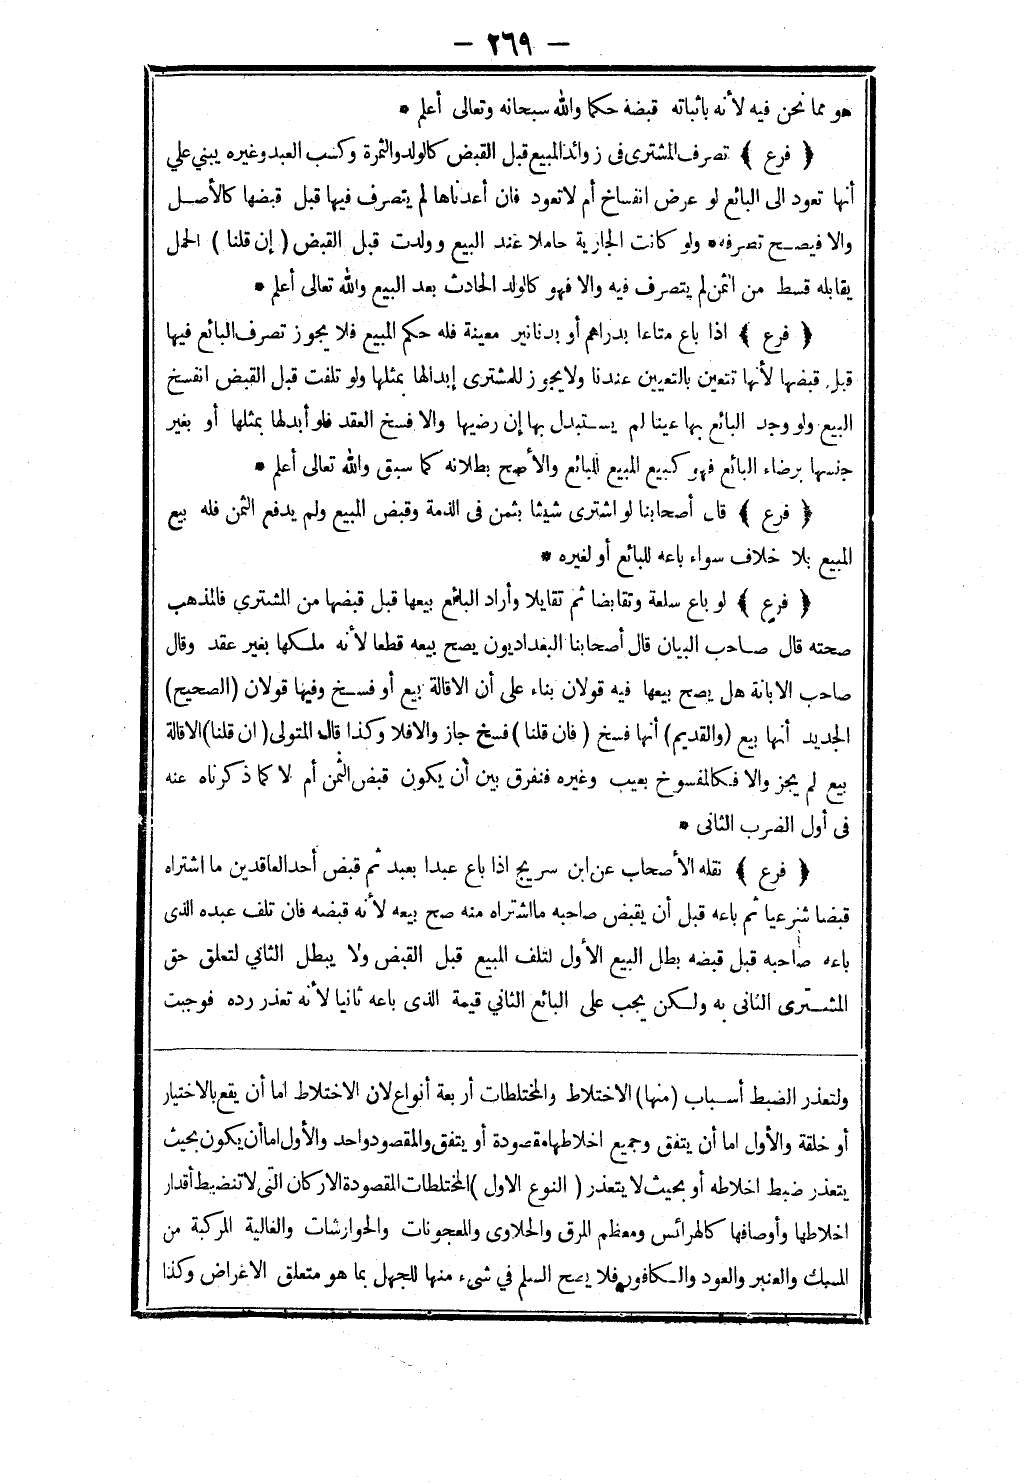 — ٢٦٩ —
هو مما نحن فيه لأنه باثباته قبضة حكما والله سبحانه وتعالى أعلم *
﴿ فرع ﴾ تصرف المشترى فى زوائد المبيع قبل القبض كالولد والثمرة وكسب العبد وغيره يبني علي
أنها تعود الى البائع لو عرض انفساخ أم لا تعود فان أعدناها لم يتصرف فيها قبل قبضها كالأصل
والا فيصح تصرفه * ولو كانت الجارية حاملا عند البيع وولدت قبل القبض ( إن قلنا ) الحمل
يقابله قسط من الثمن لم يتصرف فيه والا فهو كالولد الحادث بعد البيع والله تعالى أعلم *
﴿ فرع ﴾ اذا باع متاعا بدراهم أو بدنانير معينة فله حكم المبيع فلا يجوز تصرف البائع فيها
قبل قبضها لأنها تتعين بالتعيين عندنا ولا يجوز للمشترى إبدالها بمثلها ولو تلفت قبل القبض انفسخ
البيع ولو وجد البائع بها عيبا لم يستبدل بها إن رضيها والا فسخ العقد فلو أبدلها بمثلها أو بغير
جنسها برضاء البائع فهو كبيع المبيع للبائع والأصح بطلانه كما سبق والله تعالى أعلم *
﴿ فرع ﴾ قال أصحابنا لو اشترى شيئا بثمن فى الذمة وقبض المبيع ولم يدفع الثمن فله بيع
المبيع بلا خلاف سواء باعه للبائع أو لغيره *
﴿ فرع ﴾ لو باع سلعة وتقابضا ثم تقايلا وأراد البائع بيعها قبل قبضها من المشتري فالمذهب
صحته قال صاحب البيان قال أصحابنا البغداديون يصح بيعه قطعا لأنه ملكها بغير عقد وقال
صاحب الابانة هل يصح بيعها فيه قولان بناء على أن الاقالة بيع أو فسخ وفيها قولان (الصحيح)
الجديد أنها بيع (والقديم) أنها فسخ ( فان قلنا ) فسخ جاز والا فلا وكذا قال المتولى ( ان قلنا ) الاقالة
بيع لم يجز والا فكالمفسوخ بعيب وغيره فنفرق بين أن يكون قبض الثمن أم لا كما ذكرناه عنه
فى أول الضرب الثانى *
﴿ فرع ﴾ نقله الأصحاب عن ابن سريج اذا باع عبدا بعبد ثم قبض أحد العاقدين ما اشتراه
قبضا شرعيا ثم باعه قبل أن يقبض صاحبه ما اشتراه منه صح بيعه لأنه قبضه فان تلف عبده الذى
باعه صاحبه قبل قبضه بطل البيع الأول لتلف المبيع قبل القبض ولا يبطل الثاني لتعلق حق
المشترى الثانى به ولكن يجب على البائع الثاني قيمة الذى باعه ثانيا لأنه تعذر رده فوجبت
ولتعذر الضبط أسباب (منها) الاختلاط والمختلطات أربعة أنواع لان الاختلاط اما أن يقع بالاختيار
أو خلقة والأول اما أن يتفق وجميع اخلاطها مقصودة أو يتفق والمقصود واحد والأول اما أن يكون بحيث
يتعذر ضبط اخلاطه أو بحيث لا يتعذر ( النوع الاول ) المختلطات المقصودة الاركان التى لا تنضبط أقدار
اخلاطها وأوصافها كالهرائس ومعظم المرق والحلاوى والمعجونات والجوارشات والغالية المركبة من
المسك والعنبر والعود والكافور فلا يصح السلم في شىء منها للجهل بما هو متعلق الاغراض وكذا